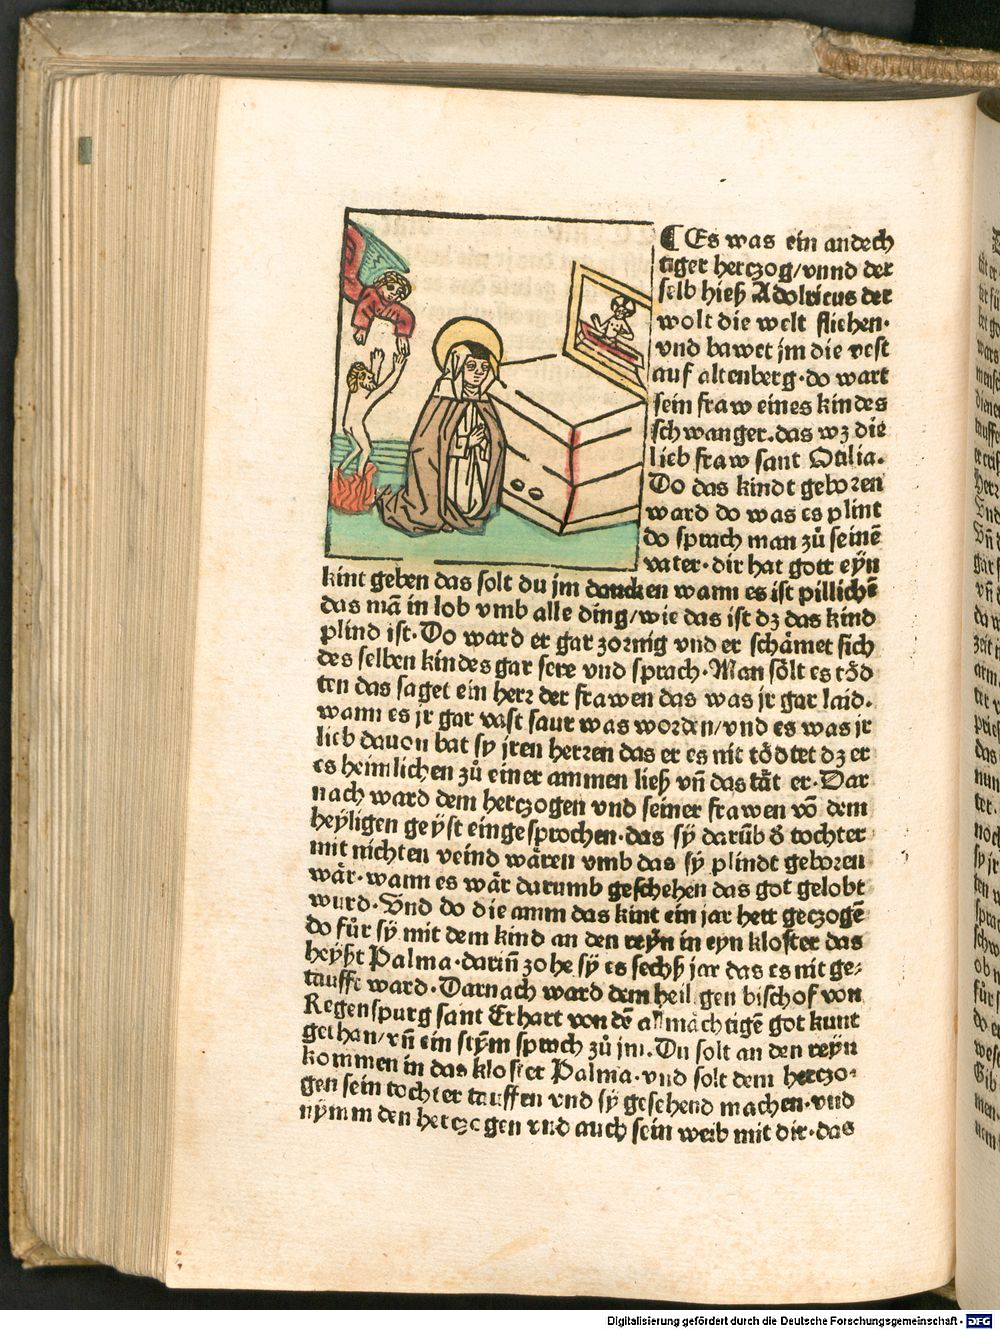 ¶ Es was ein andech
tiger hertzog/vnnd der
selb hieß Adolricus der
wolt die welt fliehen·
vnd bawet jm die vest
auf altenberg·do wart
sein fraw eines kindes
schwanger·das wz die
lieb fraw sant Otilia·
Do das kindt geboren
ward do was es plint
do sprach man zů seinē
vater·dir hat gott eÿn
kint geben das solt du jm dancken wann es ist pillichē
das mā in lob vmb alle ding/wie das ist dz das kind
plind ist·Do ward er gar zornig vnd er schämet sich
des selben kindes gar sere vnd sprach·Man sölt es töd
ten das saget ein herr der frawen das was jr gar laid·
wann es jr gar vast saur was worden/vnd es was jr
lieb dauon bat sy jren herren das er es nit tödtet dz er
es heimlichen zů einer ammen ließ vñ das tät er·Dar
nach ward dem hertzogen vnd seiner frawen vō dem
heÿligen geÿst eingesprochen·das sÿ darūb d̕ tochter
mit nichten veind wären vmb das sÿ plindt geboren
wär·wann es wär darumb geschehen das got gelobt
wurd·Vnd do die amm das kint ein jar hett geczogē
do fůr sÿ mit dem kind an den reÿn in eyn kloster das
heÿßt Palma·dariñ zohe sÿ es sechß jar das es nit ge⸗
taufft ward·Darnach ward dem heiligen bischof von
Regenspurg sant Erhart von dē allmächtigē got kunt
gethan/vñ ein stÿm sprach zů jm·Du solt an den reÿn
kommen in das kloster Palma·vnd solt dem hertzo⸗
gen sein tochter tauffen vnd sÿ gesehend machen·vnd
nÿmm den hertzogen vnd auch sein weib mit dir·das
Digitalisierung gefördert durch die Deutsche Forschungsgemeinschaft - DFG